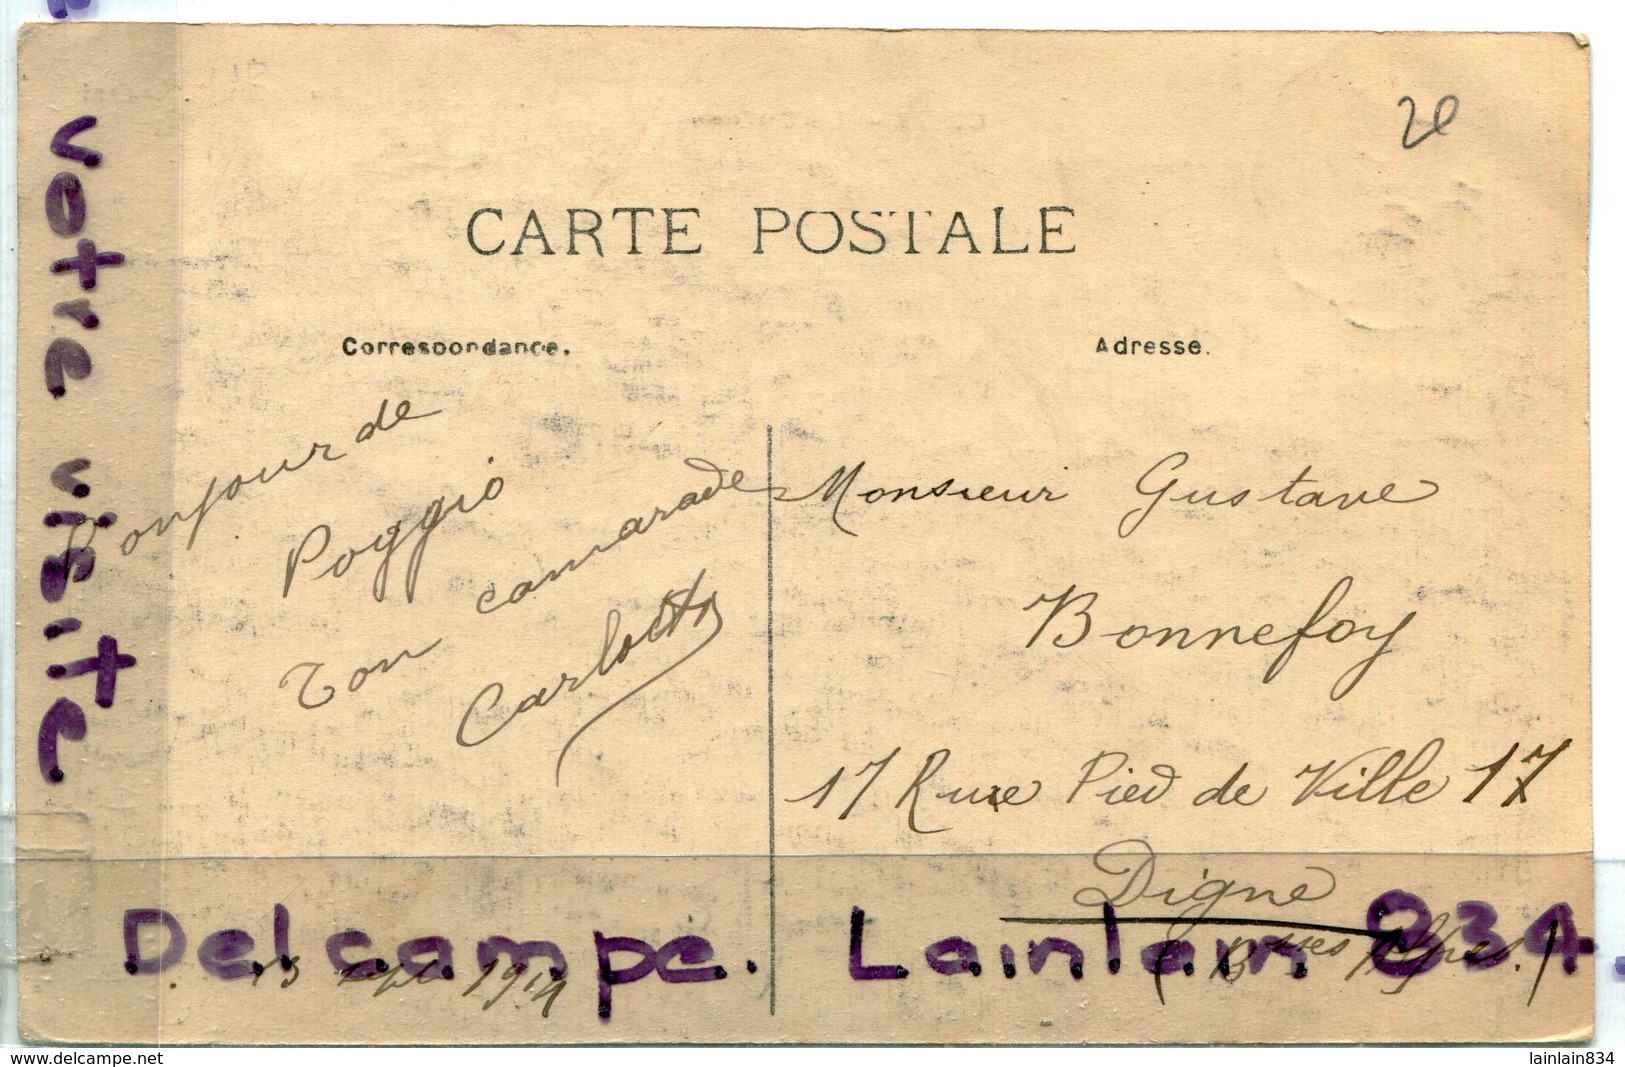 20
CARTE POSTALE
Correspondance.
Adresse.
Bonjour de
Poggio
Ton camarade
Monsieur Gustave
Bonnefoy
17 Rue Pied de Ville 17
Digne
(Bsses Alpes.)
13 sept 1914
votre visite
Delcampe. Lainlain 834.
www.delcampe.net
lainlain834